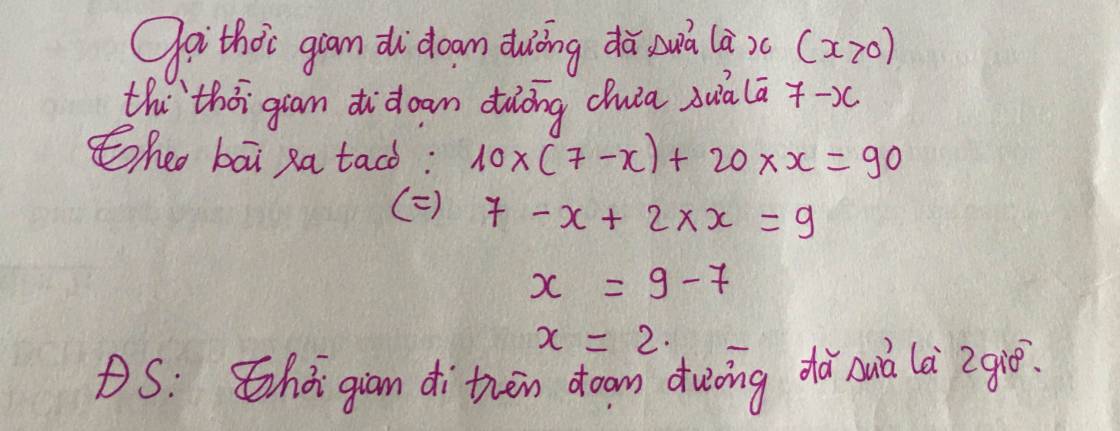 Gọi thời gian đi đoạn đường đã sửa là x (x>0)
thì thời gian đi đoạn đường chưa sửa là 7-x
Theo bài ra ta có : 10×(7-x)+ 20×x = 90
(=) 7 - x + 2×x = 9
x = 9-7
x = 2.
ĐS: Thời gian đi trên đoạn đường đã sửa là 2 giờ.